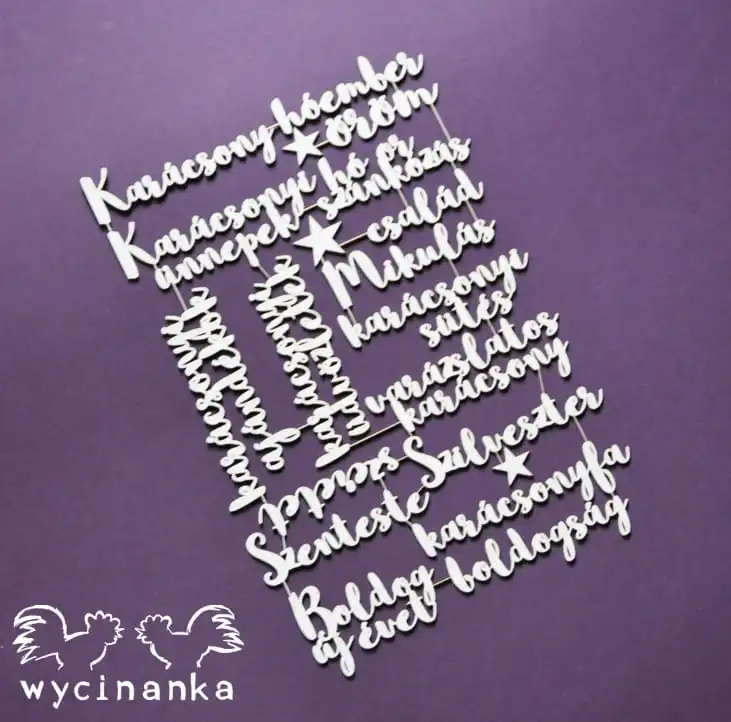 Karácsony hóember
öröm
Karácsonyi hó ör
ünnepek szánkózás
család
Mikulás
karácsonyi
sütés
varázslatos
karácsony
Szilveszter
Szenteste
karácsonyfa
Boldog boldogság
új évet
wycinanka